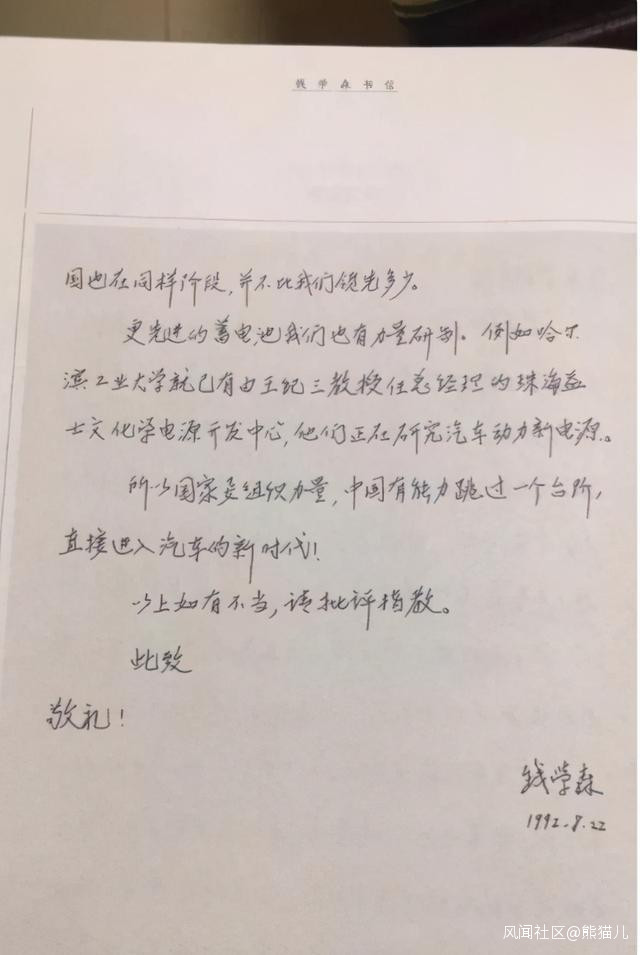 钱学森书信
国也在同样阶段，并不比我们领先多少。
更先进的蓄电池我们也有力量研制。例如哈尔
滨工业大学就已有由王纪三教授任总经理的珠海益
士文化学电源开发中心，他们正在研究汽车动力新电源。
所以国家要组织力量，中国有能力跳过一个台阶，
直接进入汽车的新时代！
以上如有不当，请批评指教。
此致
敬礼！
钱学森
1992.8.22
风闻社区@熊猫儿